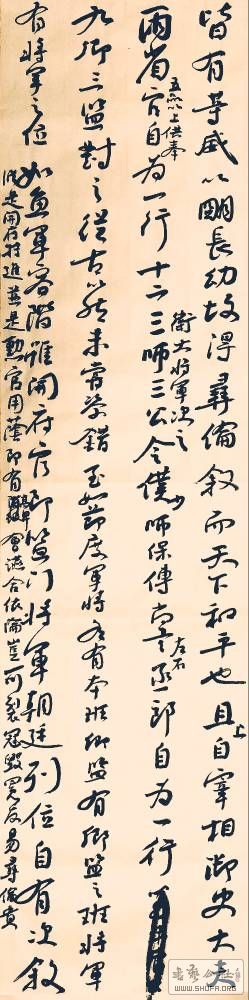 皆有等威以明長幼故得彝倫叙而天下和平也且上自宰相御史大夫
兩省五品以上供奉官自為一行十二衛大將軍次之三師三公令僕少師保傅尚書左右丞侍郎自為一行
九卿三監對之從古以然未甞參錯至如節度軍將各有本班卿監有卿監之班將軍
有將軍之位
縱是開府特進並是勲官用蔭即有高卑會讌合依倫叙豈可裂冠毀冕反易彝倫貴
如魚軍容階雖開府官即監門將軍朝廷列位自有次叙
WWW.SHUFA.ORG